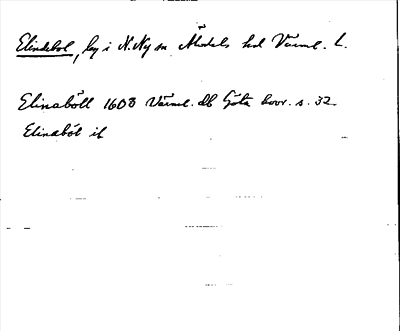 Elindebol, by i N. Ny sn Älvdals hd Värml. L.
Elinaböll 1603 Värml. db Göta hovr. s. 32
Elinaból ib